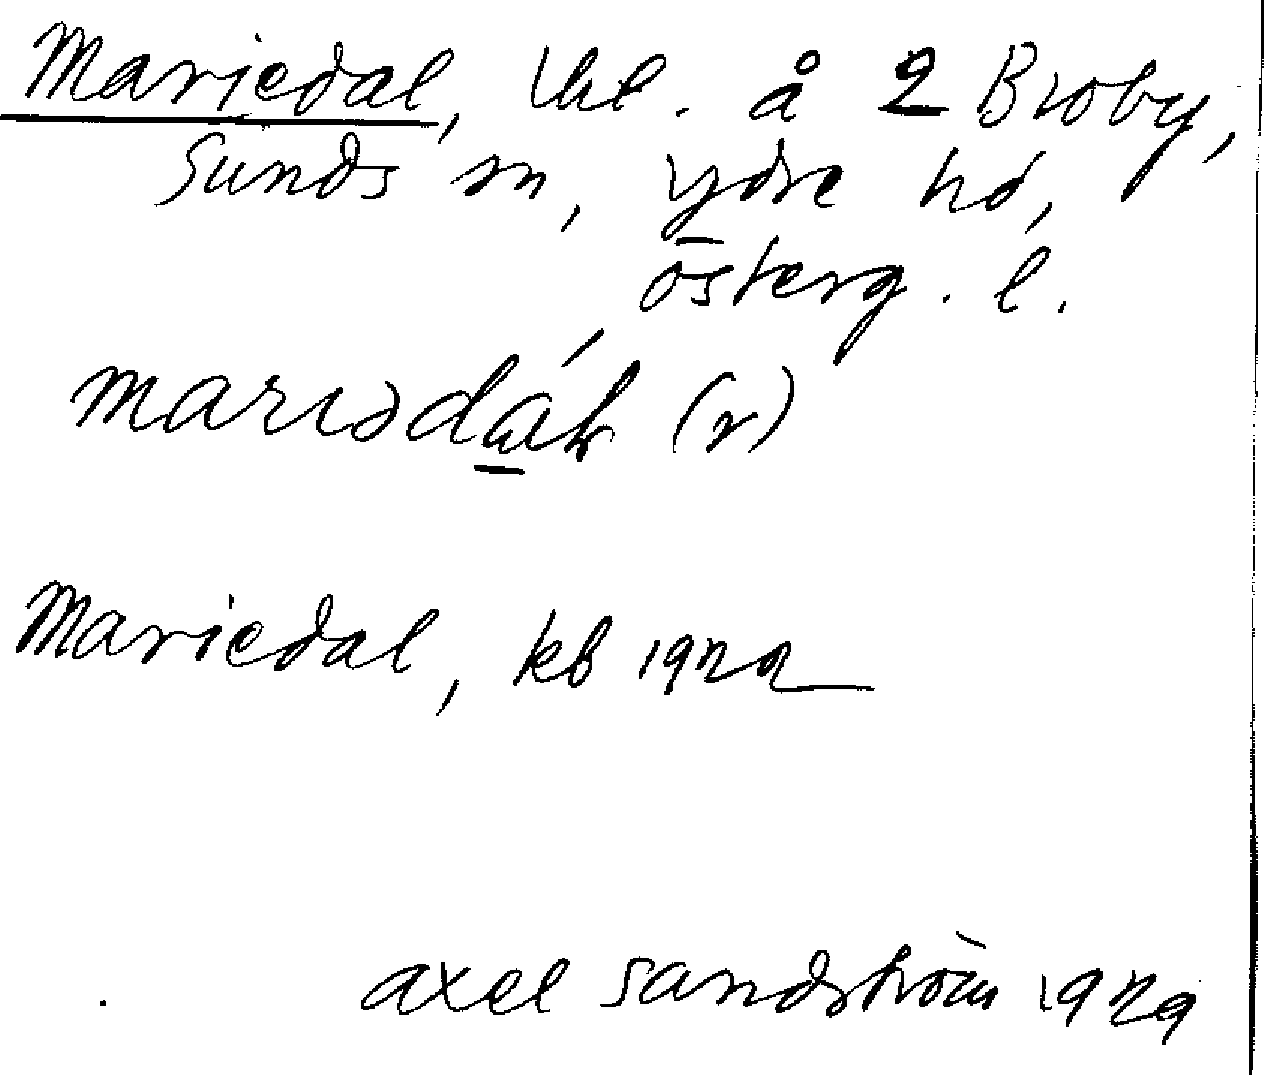 Mariedal, lhl. å 2 Broby,
Sunds sn, Ydre hd,
Österg. l.
(r)
Mariedal, kb 1929
Axel Sandström 1929